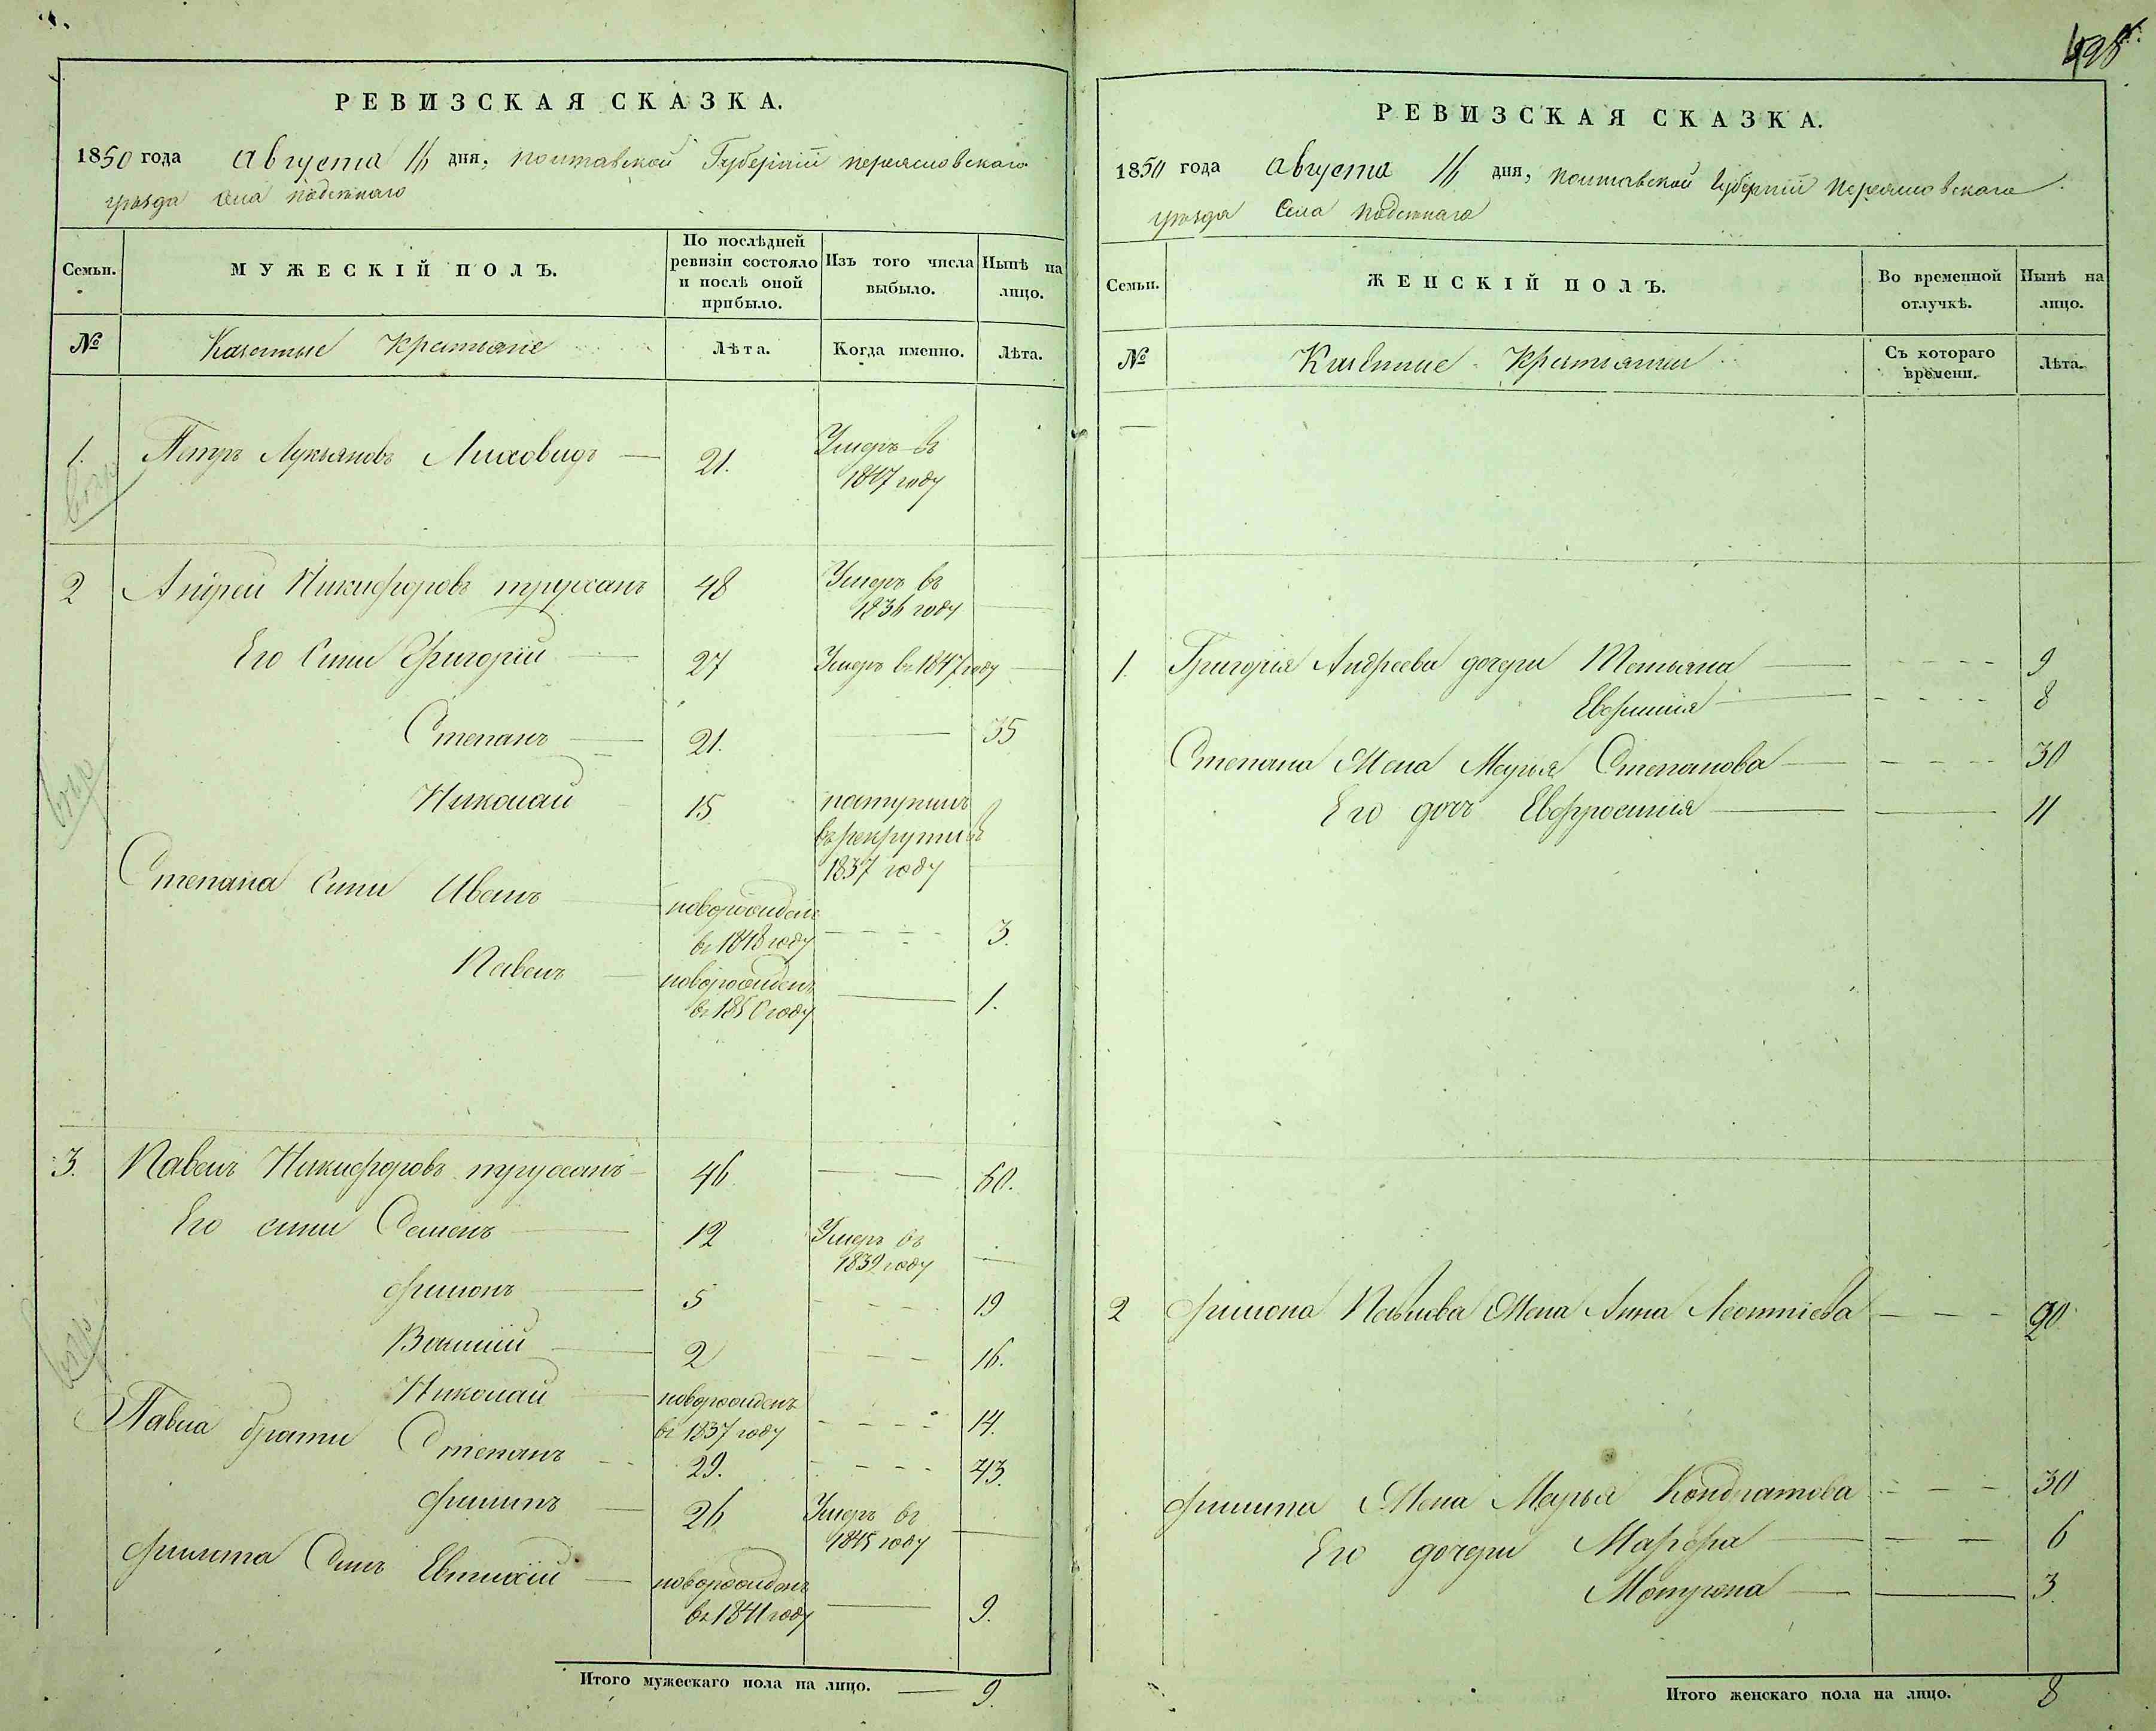 РЕВИЗСКАЯ СКАЗКА.
1850 года Августа 16 дня, полтавской Губерніи переясловского
уѣзда Села подсѣнаго
Семьи. МУЖЕСКІЙ ПОЛЪ. По послѣдней ревизіи состояло и послѣ оной прибыло. Изъ того числа выбыло. Нынѣ на лицо.
№ Казенные Крестьяне Лѣта. Когда именно. Лѣта.
1. Петръ Лукьяновъ Лиховидъ — 21. Умеръ въ
1847 году
2 Андрей Никифоровъ труханъ 48 Умеръ въ
1836 году
Его Сини Григорій 27 Умеръ въ 1847 году
Степанъ 21. 35
Николай 15 поступилъ
въ рекрути въ
1837 году
Степана Сини Иванъ новорожденъ
въ 1848 году 3.
Павелъ новорожденъ
въ 1850 году 1.
3. Павелъ Никифоровъ труханъ 46 60.
Его сини Семенъ 12 Умеръ въ
1839 году
Филонъ 5 19
Василій 2 16.
Николай новорожденъ
въ 1837 году 14.
Павла брати Степанъ 29. 43.
Филипъ 26 Умеръ въ
1845 году
Филипа Синъ Евтихій новорожденъ
въ 1841 году 9.
Итого мужескаго пола на лицо. — 9.
498
РЕВИЗСКАЯ СКАЗКА.
1850 года Августа 16 дня, полтавской Губерніи Переясловского
уѣзда Села подсѣнаго
Семьи. ЖЕНСКІЙ ПОЛЪ. Во временной отлучкѣ. Нынѣ на лицо.
№ Казенные Крестьянки Съ котораго времени. Лѣта.
1. Григорія Андреева дочери Татьяна 9
Евфимія 8
Степана Жена Марья Степанова 30
Его дочь Евфросинія 11
2 Филона Павлова Жена Анна Леонтіева 20
Филипа Жена Марья Кондратова 30
Его дочери Марфа 6
Мотрона 3.
Итого женскаго пола на лицо. 8